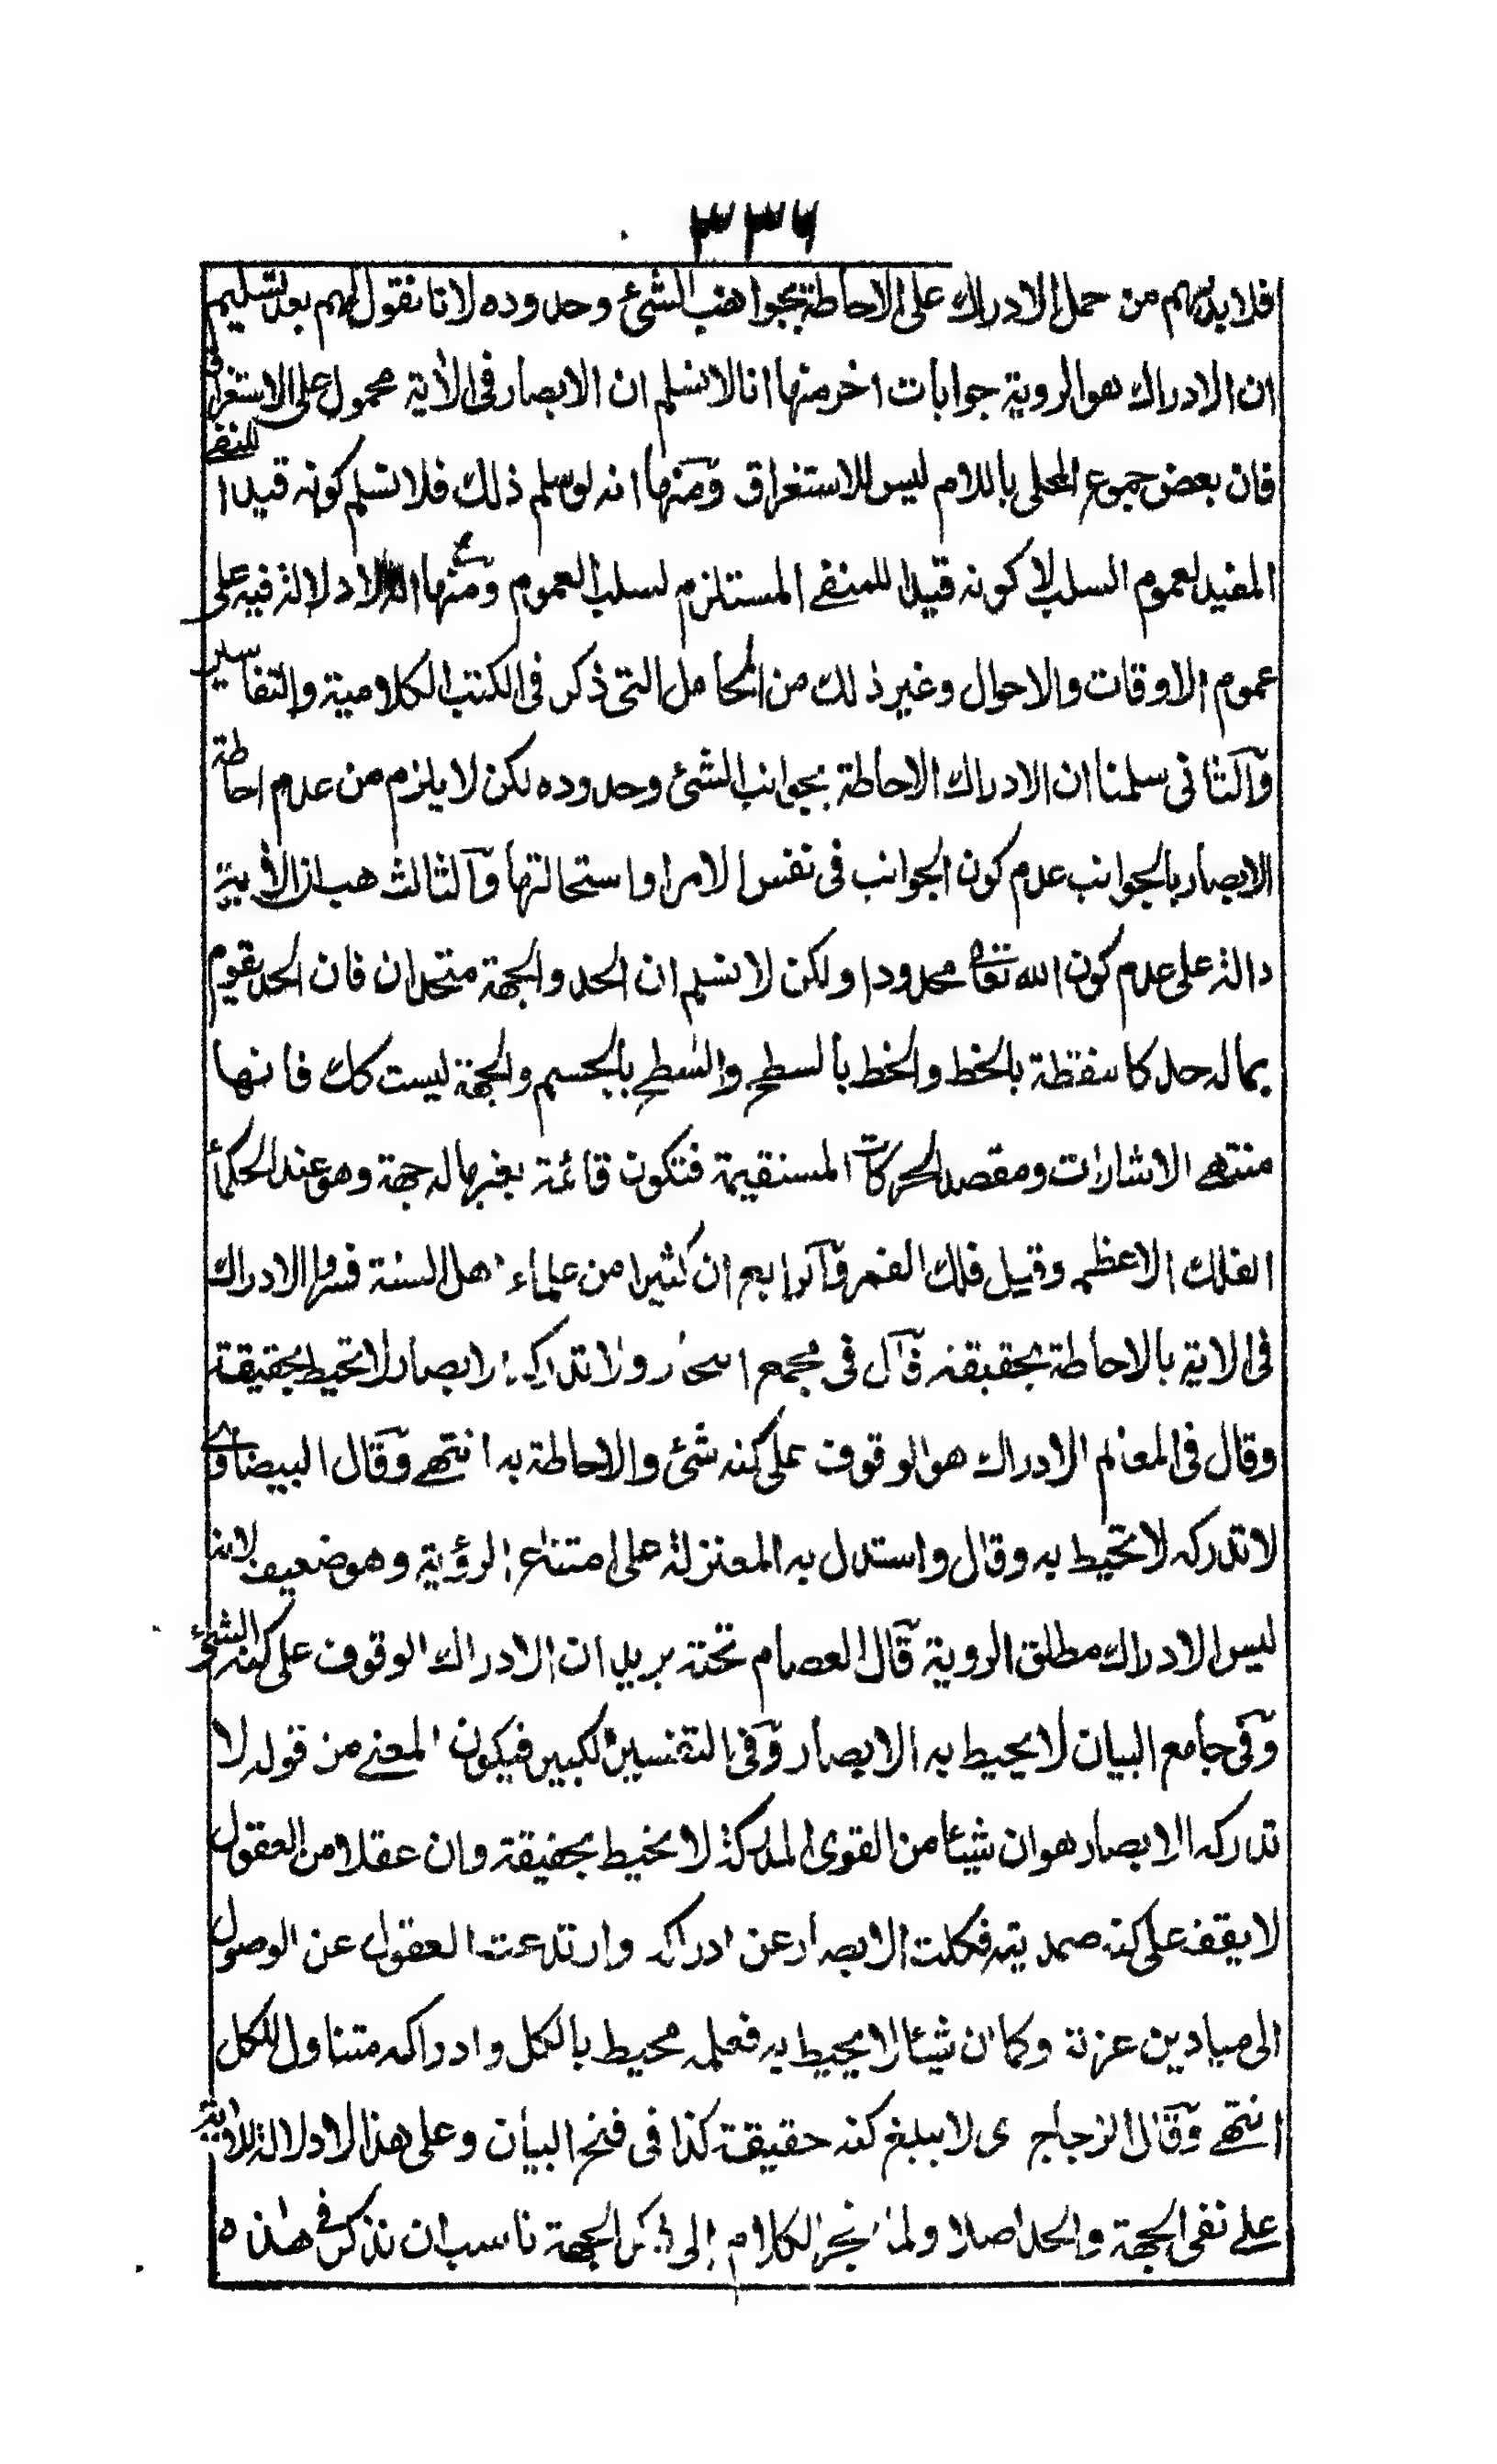 ٣٣٦
فلا بد لهم من حمل الادراك على الاحاطة بجوانب الشئ وحدوده لانا نقول لهم بعد تسليم
ان الادراك هو الروية جوابات اخر منها انا لا نسلم ان الابصار فى الآية محمول على الاستغراق
فان بعض جموع المحلى باللام ليس للاستغراق ومنها انه لو سلم ذلك فلا نسلم كونه قيدا للنفے
المفيد لعموم السلب لا كونه قيدا للمنفے المستلزم لسلب العموم ومنها انه لا دلالة فيه على
عموم الاوقات والاحوال وغير ذلك من المحامل التى ذكر فى الكتب الكلامية والتفاسير
والثانى سلمنا ان الادراك الاحاطة بجوانب الشئ وحدوده لكن لا يلزم من عدم احاطة
الابصار بالجوانب عدم كون الجوانب فى نفس الامر او استحالتها والثالث هب ان الآية
دالة على عدم كون الله تعالى محدودا ولكن لا نسلم ان الحد والجهة متحدان فان الحد يقوم
بما له حد كالنقطة بالخط والخط بالسطح والسطح بالجسم والجهة ليست كك فانها
منتهى الاشارات ومقصد الحركات المستقيمة فتكون قائمة بغير ما له جهة وهو عند الحكماء
الفلك الاعظم وقيل فلك القمر والرابع ان كثيرا من علماء اهل السنة فسروا الادراك
فى الاية بالاحاطة بحقيقته قال فى مجمع البحار ولا تدركه الابصار لا تحيط بحقيقة
وقال فى المعالم الادراك هو الوقوف على كنه شئ والاحاطة به انتهے وقال البيضاوى
لا تدركه لا تحيط به وقال واستدل به المعتزلة على امتناع الرؤية وهو ضعيف لانه
ليس الادراك مطلق الروية قال العصام تحته يريد ان الادراك الوقوف على كنه الشئ
وفى جامع البيان لا يحيط به الابصار وفى التفسير الكبير فيكون المعنے من قوله لا
تدركه الابصار هو ان شيئا من القوى المدركة لا يحيط بحقيقة وان عقلا من العقول
لا يقف على كنه صمديته فكلت الابصار عن ادراكه وارتدعت العقول عن الوصول
الى ميادين عزته وكما ان شيئا لا يحيط به فعلمه محيط بالكل وادراكه متناول للكل
انتهے وقال الزجاج اى لا يبلغ كنه حقيقة كذا فى فتح البيان وعلى هذا لا دلالة للاية
على نفى الجهة والحد اصلا ولما انجر الكلام الى ذكر الجهة ناسب ان نذكر فى هذه